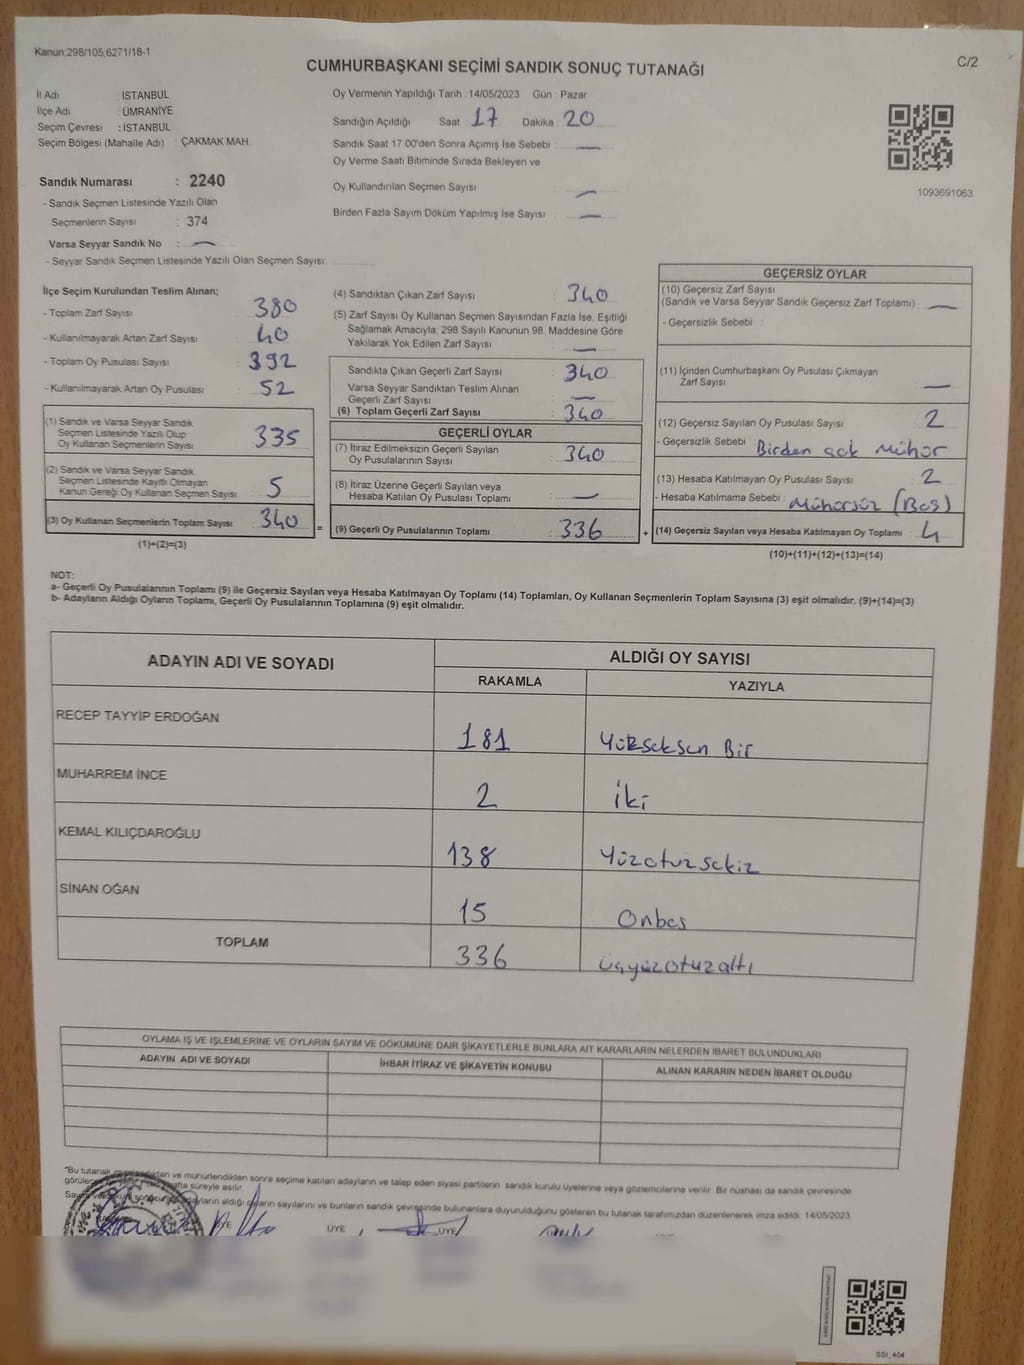 Kanun:298/105,6271/18-1
C/2
CUMHURBAŞKANI SEÇİMİ SANDIK SONUÇ TUTANAĞI
İl Adı : İSTANBUL
İlçe Adı : ÜMRANİYE
Seçim Çevresi : İSTANBUL
Seçim Bölgesi (Mahalle Adı) : ÇAKMAK MAH.
Sandık Numarası : 2240
- Sandık Seçmen Listesinde Yazılı Olan
Seçmenlerin Sayısı : 374
Varsa Seyyar Sandık No : —
- Seyyar Sandık Seçmen Listesinde Yazılı Olan Seçmen Sayısı
Oy Vermenin Yapıldığı Tarih : 14/05/2023 Gün : Pazar
Sandığın Açıldığı Saat : 17 Dakika : 20
Sandık Saat 17.00'den Sonra Açımış İse Sebebi : —
Oy Verme Saati Bitiminde Sırada Bekleyen ve
Oy Kullandırılan Seçmen Sayısı : —
Birden Fazla Sayım Döküm Yapılmış İse Sayısı : —
1093691063
İlçe Seçim Kurulundan Teslim Alınan;
- Toplam Zarf Sayısı : 380
- Kullanılmayarak Artan Zarf Sayısı : 40
- Toplam Oy Pusulası Sayısı : 392
- Kullanılmayarak Artan Oy Pusulası : 52
(1) Sandık ve Varsa Seyyar Sandık
Seçmen Listesinde Yazılı Olup
Oy Kullanan Seçmenlerin Sayısı : 335
(2) Sandık ve Varsa Seyyar Sandık
Seçmen Listesinde Kayıtlı Olmayan
Kanun Gereği Oy Kullanan Seçmen Sayısı : 5
(3) Oy Kullanan Seçmenlerin Toplam Sayısı : 340
(1)+(2)=(3)
(4) Sandıktan Çıkan Zarf Sayısı : 340
(5) Zarf Sayısı Oy Kullanan Seçmen Sayısından Fazla İse, Eşitliği
Sağlamak Amacıyla; 298 Sayılı Kanunun 98. Maddesine Göre
Yakılarak Yok Edilen Zarf Sayısı : —
Sandıkta Çıkan Geçerli Zarf Sayısı : 340
Varsa Seyyar Sandıktan Teslim Alınan
Geçerli Zarf Sayısı : —
(6) Toplam Geçerli Zarf Sayısı : 340
GEÇERLİ OYLAR
(7) İtiraz Edilmeksizin Geçerli Sayılan
Oy Pusulalarının Sayısı : 340
(8) İtiraz Üzerine Geçerli Sayılan veya
Hesaba Katılan Oy Pusulası Toplamı : —
= (9) Geçerli Oy Pusulalarının Toplamı : 336 +
GEÇERSİZ OYLAR
(10) Geçersiz Zarf Sayısı
(Sandık ve Varsa Seyyar Sandık Geçersiz Zarf Toplamı) : —
- Geçersizlik Sebebi :
(11) İçinden Cumhurbaşkanı Oy Pusulası Çıkmayan
Zarf Sayısı : —
(12) Geçersiz Sayılan Oy Pusulası Sayısı : 2
- Geçersizlik Sebebi : Birden çok mühür
(13) Hesaba Katılmayan Oy Pusulası Sayısı : 2
- Hesaba Katılmama Sebebi : Mühürsüz (Boş)
(14) Geçersiz Sayılan veya Hesaba Katılmayan Oy Toplamı : 4
(10)+(11)+(12)+(13)=(14)
NOT:
a- Geçerli Oy Pusulalarının Toplamı (9) ile Geçersiz Sayılan veya Hesaba Katılmayan Oy Toplamı (14) Toplamları, Oy Kullanan Seçmenlerin Toplam Sayısına (3) eşit olmalıdır. (9)+(14)=(3)
b- Adayların Aldığı Oyların Toplamı, Geçerli Oy Pusulalarının Toplamına (9) eşit olmalıdır.
ADAYIN ADI VE SOYADI ALDIĞI OY SAYISI
RAKAMLA YAZIYLA
RECEP TAYYİP ERDOĞAN 181 Yükseksen Bir
MUHARREM İNCE 2 İki
KEMAL KILIÇDAROĞLU 138 Yüzotuzsekiz
SİNAN OĞAN 15 Onbeş
TOPLAM 336 Üçyüzotuzaltı
OYLAMA İŞ VE İŞLEMLERİNE VE OYLARIN SAYIM VE DÖKÜMÜNE DAİR ŞİKAYETLERLE BUNLARA AİT KARARLARIN NELERDEN İBARET BULUNDUKLARI
ADAYIN ADI VE SOYADI İHBAR İTİRAZ VE ŞİKAYETİN KONUSU ALINAN KARARIN NEDEN İBARET OLDUĞU
"Bu tutanak ve mühürlendikten sonra seçime katılan adayların ve talep eden siyasi partilerin sandık kurulu üyelerine veya gözlemcilerine verilir. Bir nüshası da sandık çevresinde
süreyle asılır.
aldığı oyların sayılarını ve bunların sandık çevresinde bulunanlara duyurulduğunu gösteren bu tutanak tarafımızdan düzenlenerek imza edildi. 14/05/2023
ÜYE ÜYE
SSİ_404